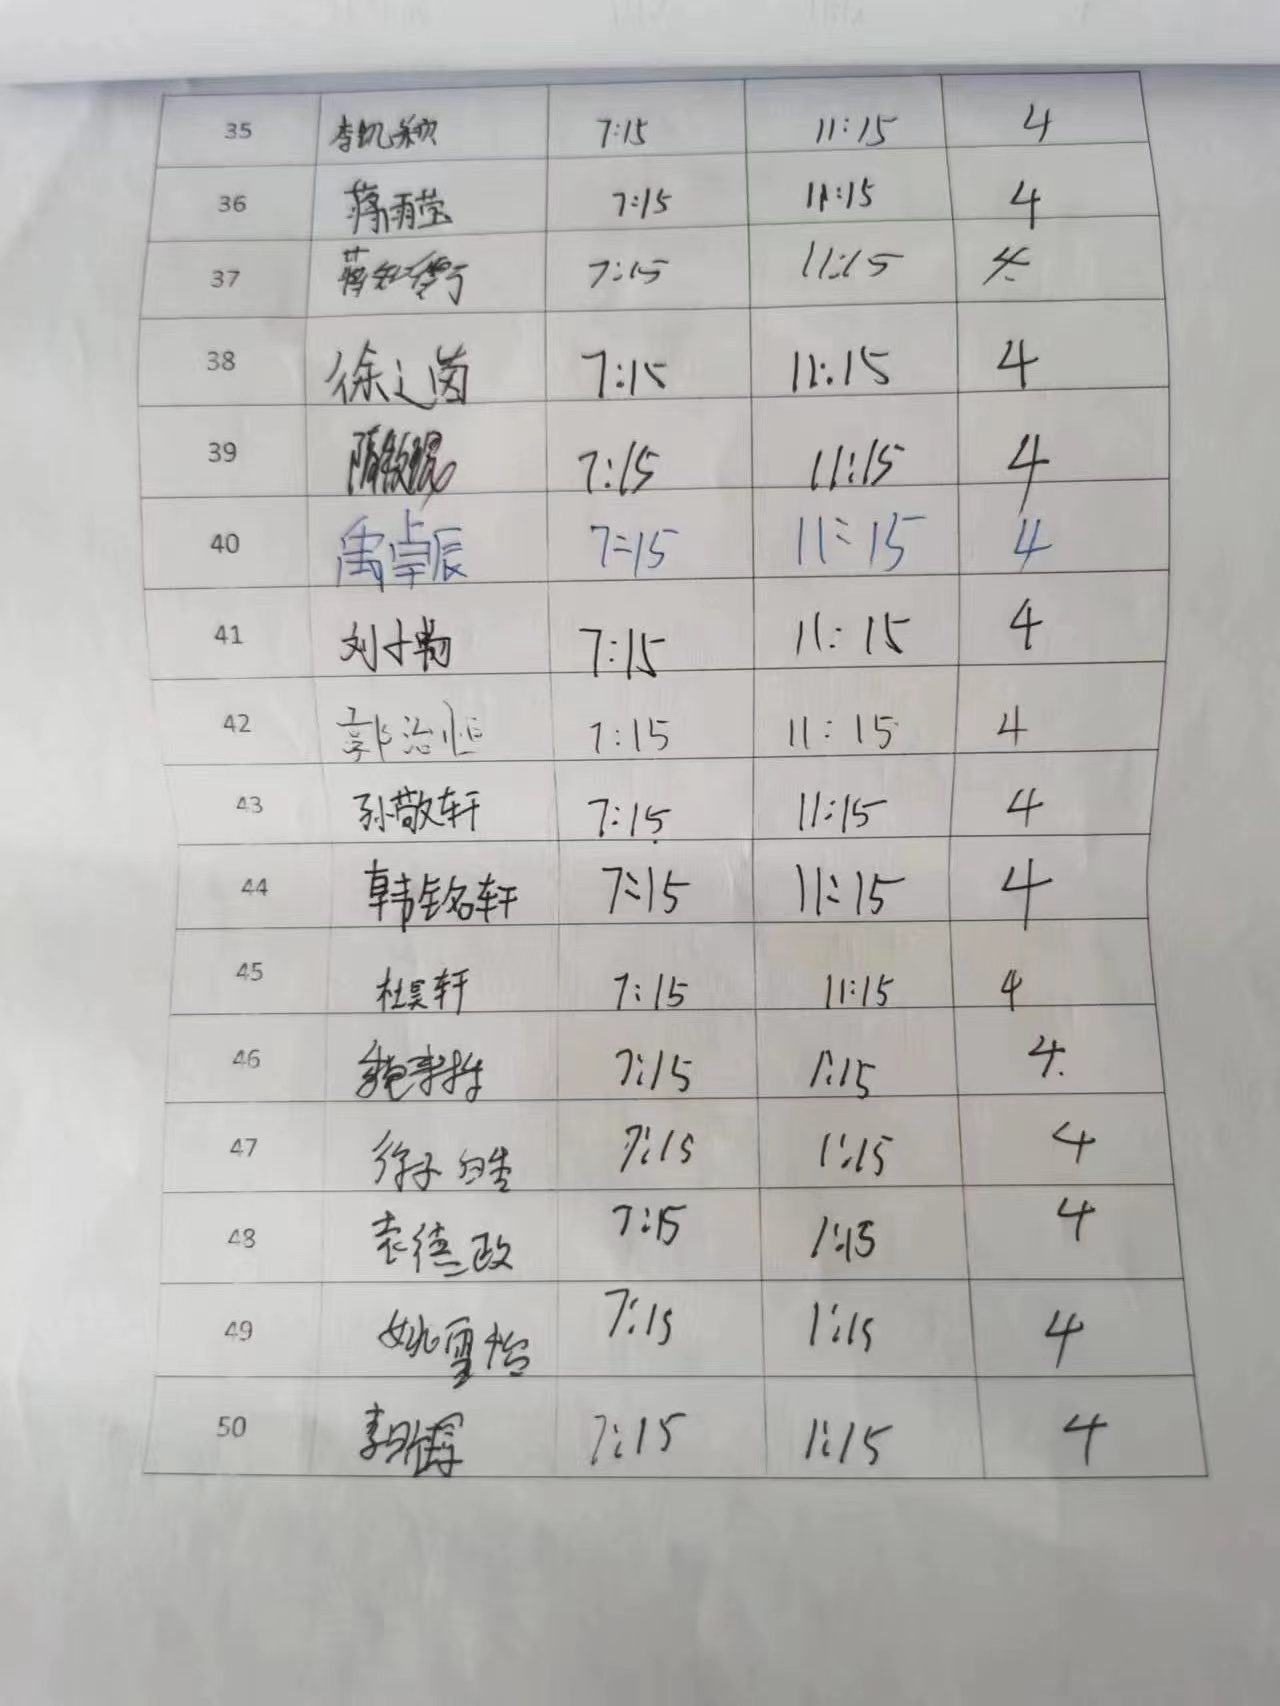 35 7:15 11:15 4
36 蒋雨莹 7:15 11:15 4
37 7:15 11:15 4
38 徐之茵 7:15 11:15 4
39 7:15 11:15 4
40 禹卓辰 7:15 11:15 4
41 刘子畅 7:15 11:15 4
42 郭治恒 7:15 11:15 4
43 孙敬轩 7:15 11:15 4
44 韩铭轩 7:15 11:15 4
45 杜昊轩 7:15 11:15 4
46 7:15 1:15 4
47 徐子皓 7:15 1:15 4
48 袁德政 7:15 1:15 4
49 姚雪怡 7:15 1:15 4
50 7:15 1:15 4